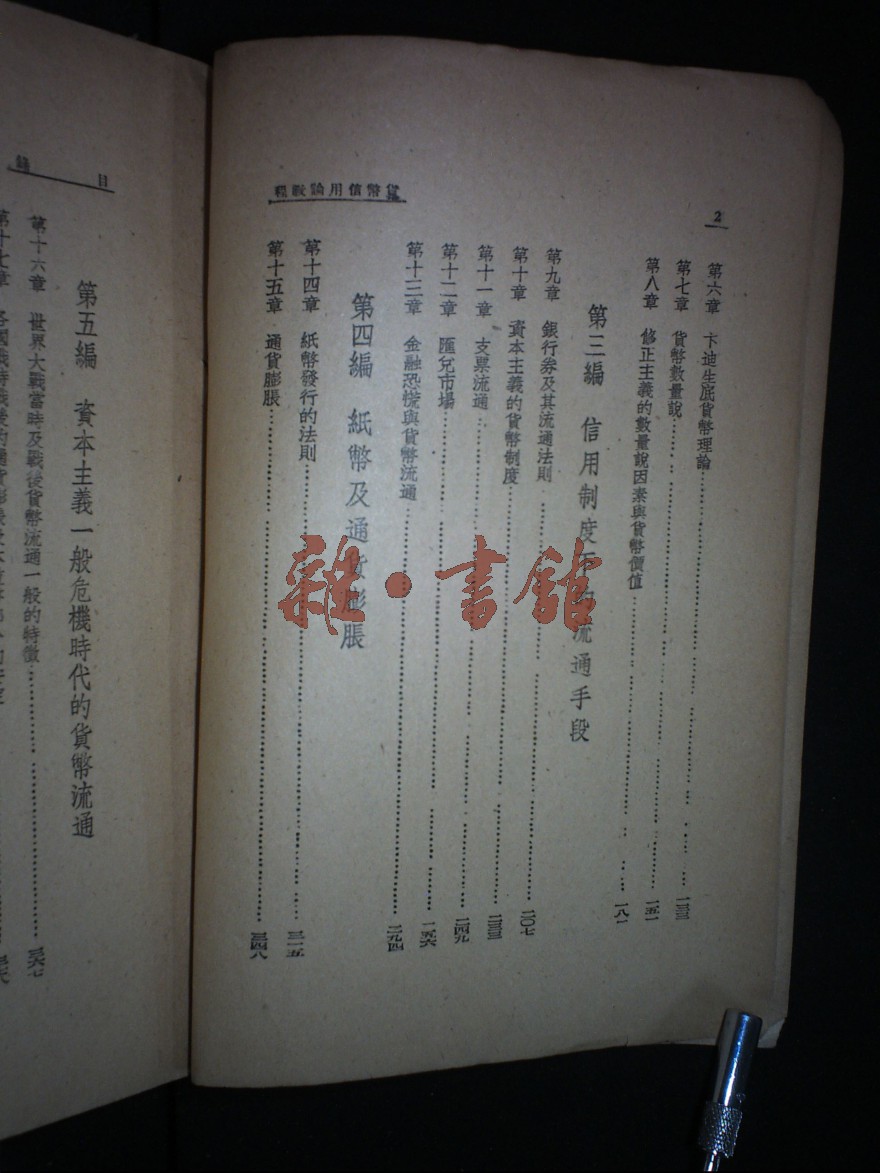 2
貨幣信用論教程
第六章 卞迪生底貨幣理論……一三三
第七章 貨幣數量說……一五一
第八章 修正主義的數量說因素與貨幣價值……一八一
第三編 信用制度下的流通手段
第九章 銀行券及其流通法則……二〇七
第十章 資本主義的貨幣制度……二三三
第十一章 支票流通……二四九
第十二章 匯兌市場……一五六
第十三章 金融恐慌與貨幣流通……二九四
第四編 紙幣及通貨膨脹
第十四章 紙幣發行的法則……三一五
第十五章 通貨膨脹……三四八
目錄
第五編 資本主義一般危機時代的貨幣流通
第十六章 世界大戰當時及戰後貨幣流通一般的特徵……三六七
第十七章 各國戰時戰後的通貨膨脹及
雜·書館